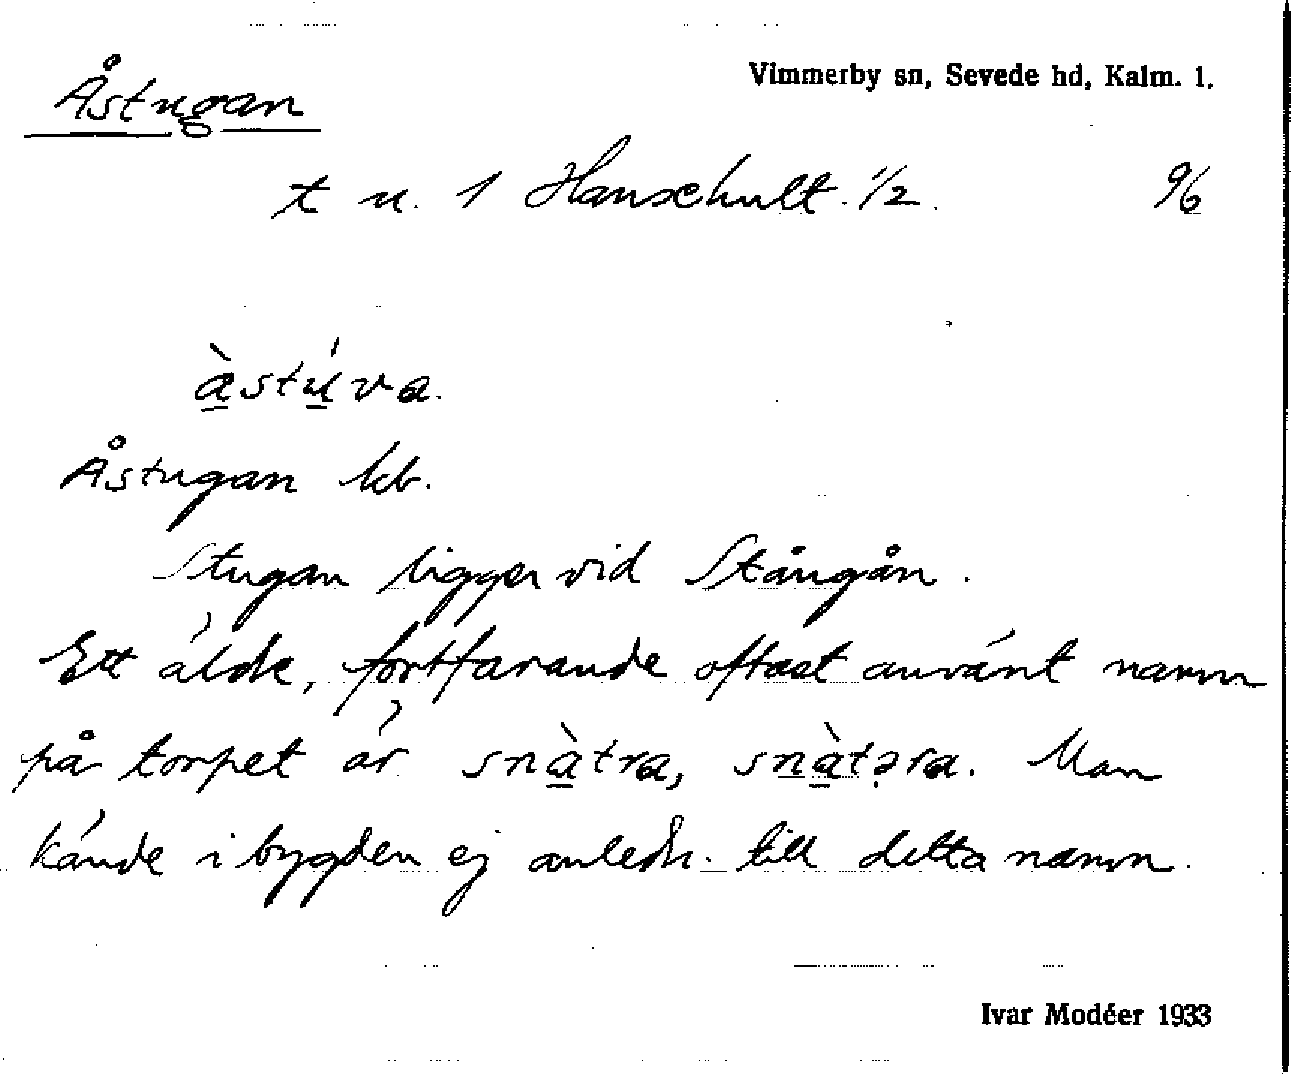 Åstugan
Vimmerby sn, Sevede hd, Kalm. l.
t u. 1 Hanschult. 1/2. 96
àstúva.
Åstugan kb.
Stugan ligger vid Stångån.
Ett äldre, fortfarande oftast använt namn
på torpet är snàtra, snàtəra. Man
kände i bygden ej anledn. till detta namn.
Ivar Modéer 1933